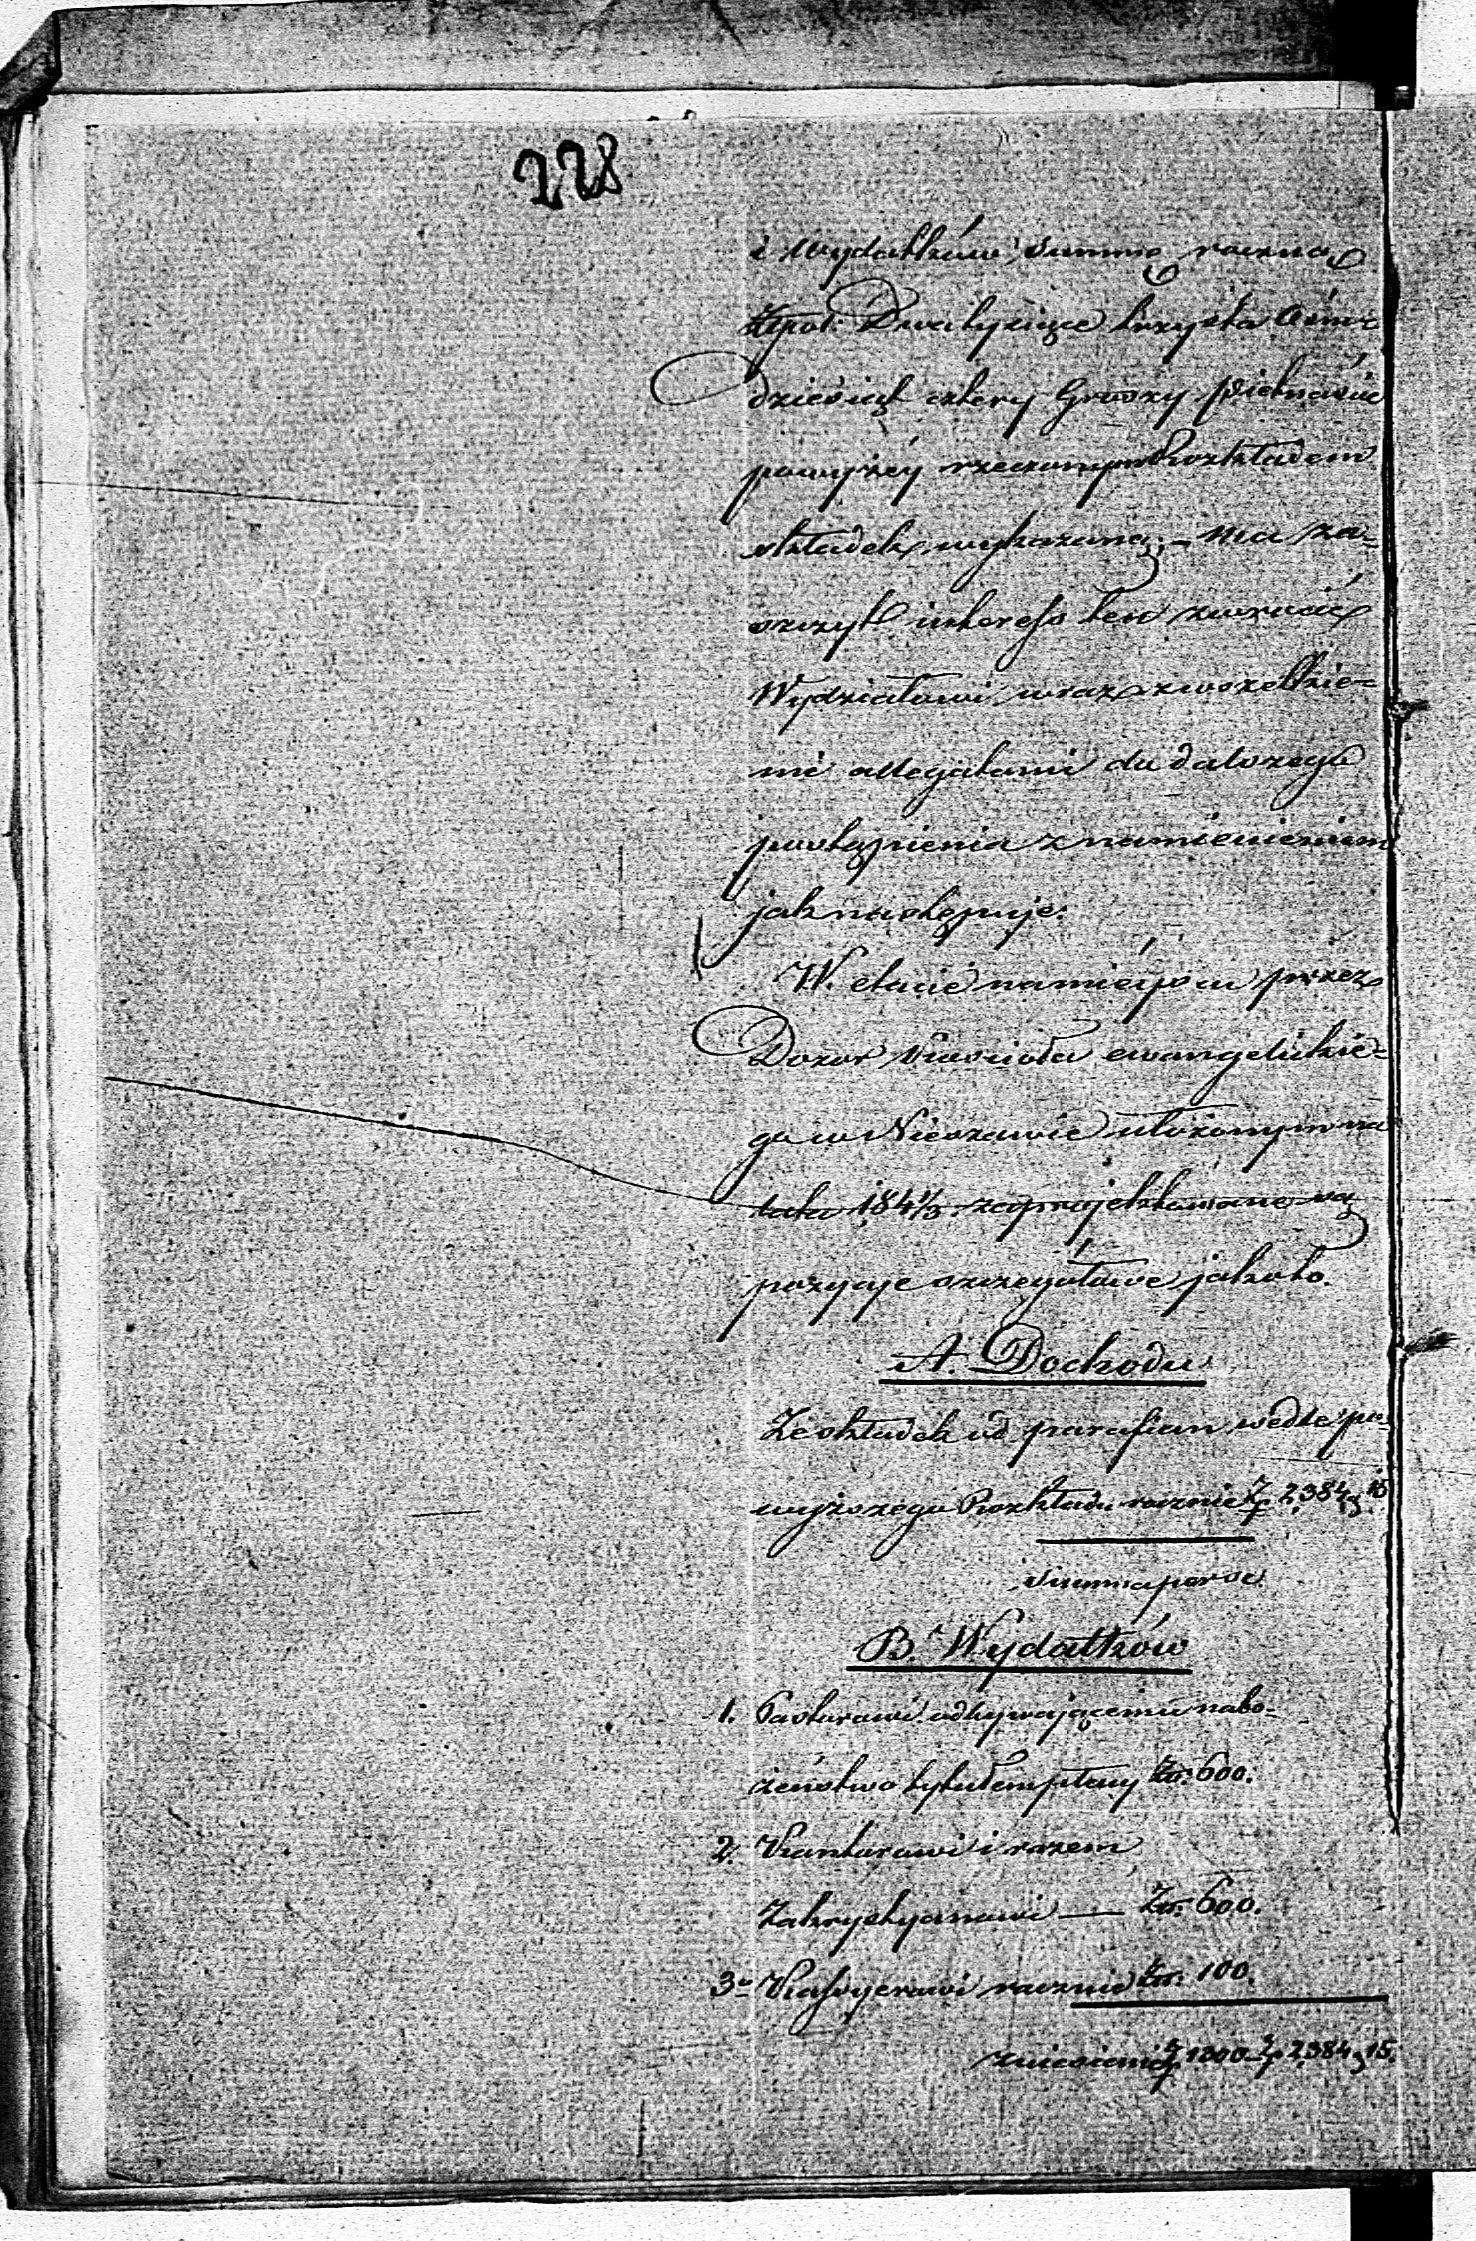 228
i wydatków summę roczną
Złpol: Dwa tysiące trzysta Ośm-
dziesiąt cztery Groszy piętnaście
powyżéy rzeczonym Rozkładem
składek wykazaną; – ma za-
szczyt interess ten zwrócić
Wydziałowi wraz z wszelkie-
mi allegatami do dalszego
postąpienia z namienieniem
jak następuje:
W etacie namiéysca przez
Dozór Kościoła ewangelickie-
go w Nieszawie ułożonym na
lata 184 1/3 zaprojektowane są
pozycye szczegółowe jakoto.
A Dochodu
Ze składek od parafian wedle po-
wyższego Rozkładu rocznie Zł 2,384 g 15
Summa per se
B. Wydatków
1. Pastorowi odbywającemu nabo-
żeństwo tytułem płacy Złr. 600.
2. Kantorowi i razem
Zakrystyanowi — Złr. 600.
3. Kassyerowi rocznie Złr. 100.
zniesienie Zł 1300 – Zł 2,384 g 15.